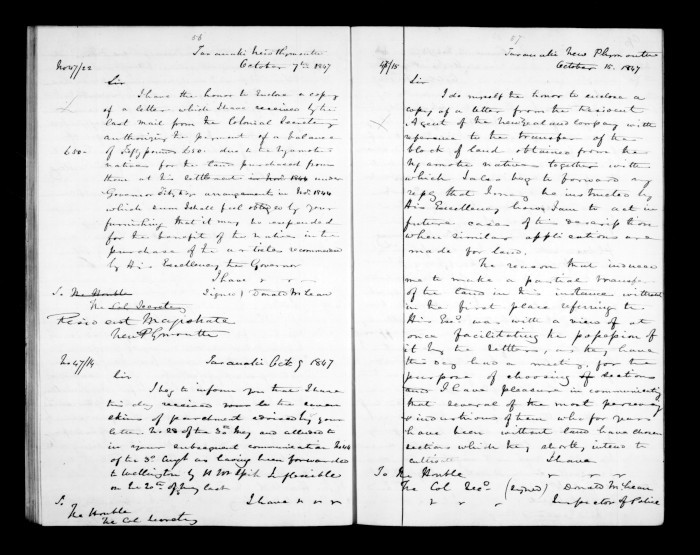 56
Taranaki New Plymouth
No 47/22 October 7th 1847
Sir
I have the honor to enclose a copy
of a letter which I have received by the
last mail from the Colonial Secretary
authorizing the payment of a balance
£50- of Fifty pounds £50. due to the Ngamotu
natives for the land purchased from
them at this settlement in Nov. 1844 under
Governor Fitzroy's arrangement in Nov. 1844
which sum I shall feel obliged by your
furnishing that it may be expended
for the benefit of the natives in the
purchase of the articles recommended
by His Excellency the Governor
I have
Signed Donald McLean
To The Honble
The Col. Secretary
Resident Magistrate
New Plymouth
No 47/14 Taranaki Octr 9 1847
Sir
I beg to inform you that I have
this day received the
skins of parchment advised by your
letter No 28 of the 3rd May and alluded to
in your subsequent communication No 44
of the 3rd Augt as having been forwarded
to Wellington by H M Ship Inflexible
on the 20th of May last
I have
To
The Honble
The Col. Secretary
57
Taranaki New Plymouth
47/15 October 15. 1847
Sir
I do myself the honor to enclose a
copy of a letter from the Resident
Agent of the New Zealand Company with
reference to the transfer of the
block of land obtained from the
Ngamotu natives together with
which I also beg to forward my
reply that I may be instructed by
His Excellency how I am to act in
future cases of this description
when similar applications are
made for land.
The reason that induced
me to make a partial transfer
of the land in this instance without
in the first place referring to
His Excy was with a view of at
once facilitating the possession of
it by the settlers, as they have
this day had a meeting, for the
purpose of choosing sections
and I have pleasure in communicating
that several of the most persevering
& industrious of them who for years
have been without land have chosen
sections which they shortly intend to
cultivate I have
To The Honble
The Col Secy (signed) Donald McLean
Inspector of Police